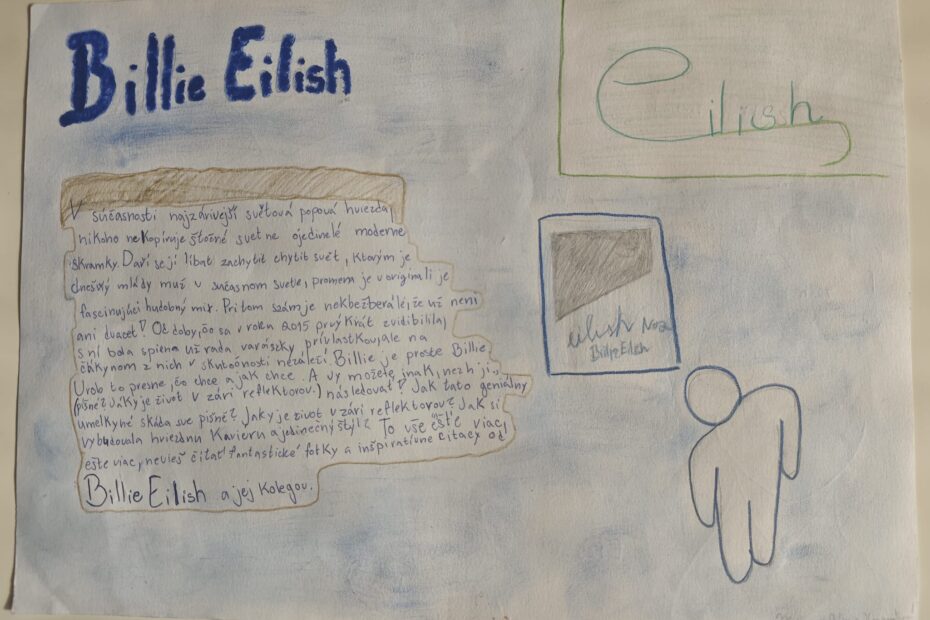 Billie Eilish
Eilish
V súčasnosti najzárivejší světová popová hviezda,
nikoho nekopíruje štočné svet ne ojedinelé moderne
škramky. Daří se jí libat zachytit chytit svět, ktorým je
dnešný mlády muž v súčasnom svete, promena je v origináli je
fascinujúci hudobný mix. Pri tom szám je nekbežberálé, že už není
ani dvacet! Od doby, čo sa v roku 2015 prvý krát zvidibilila,
s ní bola spiena už rada varózsky, prívlastkov, ale na
čákynom z nich v skutočnosti nezáleží. Billie je proste Billie.
Urob to presne, čo chce a jak chce. A vy možete, jnak, nezh ji,
(písně? Jáky je život v zári reflektorov.) následovat? Jak tato geniálny
umelkyně skáda sve pišně? Jaky je život v zári reflektorov? Jak si
vybudovala hviezdnu Karieru a jedinečný štýl? To vše ešte viac,
ešte viac, nevieš čítať fantastické fotky a inšpiratívne citacy od
Billie Eilish a jej Kolegov.
eilish
Billie Eilish